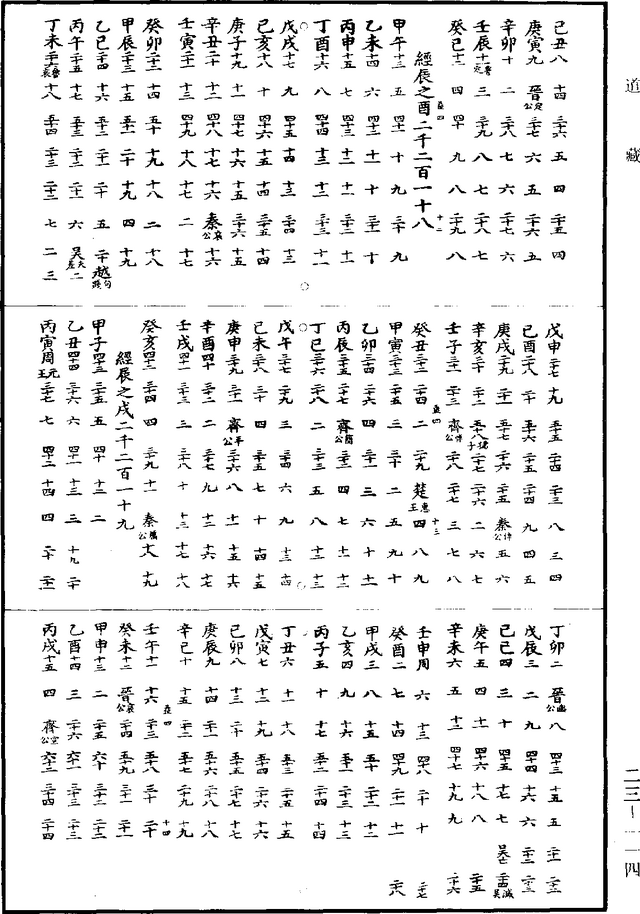 道藏
己丑八 十四 三十六 五 四 二十五 四
庚寅九 晉定公 三十七 六 五 二十六 五
辛卯十 二 三十八 七 六 二十七 六
壬辰十一魯定 三 三十九 八 七 二十八 七
癸巳十二 四 四十 九 八 二十九 八
經辰之酉二千二百一十八
甲午十三 五 四十一 十 九 三十 九
乙未十四 六 四十二 十一 十 三十一 十
丙申十五 七 四十三 十二 十一 三十二 十一
丁酉十六 八 四十四 十三 十二 三十三 十二
戊戌十七 九 四十五 十四 十三 三十四 十三
己亥十八 十 四十六 十五 十四 三十五 十四
庚子十九 十一 四十七 十六 十五 三十六 十五
辛丑二十 十二 四十八 十七 十六 秦哀公 十六
壬寅二十一 十三 四十九 十八 十七 二 十七
癸卯二十二 十四 五十 十九 十八 二 十八
甲辰二十三 十五 五十一 二十 十九 四 十九
乙巳二十四 十六 五十二 二十一 二十 五 二十 越句踐
丙午二十五 十七 五十三 二十二 二十一 六 吳夫差 二
丁未二十六魯哀 十八 五十四 二十三 二十二 七 二 三
戊申二十七 十九 五十五 二十四 二十三 八 三 四
己酉二十八 二十 五十六 二十五 二十四 九 四 五
庚戌二十九 二十一 五十七 二十六 二十五 秦悼公 五 六
辛亥三十 二十二 五十八孺子 二十七 二十六 二 六 七
壬子三十一 二十三 齊悼公 二十八 二十七 三 七 八
癸丑三十二 二十四 二 二十九 楚惠王 四 八 九
甲寅三十三 二十五 三 三十 二 五 九 十
乙卯三十四 二十六 四 三十一 三 六 十 十一
丙辰三十五 二十七 齊簡公 三十二 四 七 十一 十二
丁巳三十六 二十八 二 三十三 五 八 十二 十三
戊午三十七 二十九 三 三十四 六 九 十三 十四
己未三十八 三十 四 三十五 七 十 十四 十五
庚申三十九 三十一 齊平公 三十六 八 十一 十五 十六
辛酉四十 三十二 二 三十七 九 十二 十六 十七
壬戌四十一 三十三 三 三十八 十 十三 十七 十八
癸亥四十二 三十四 四 三十九 十一 秦厲公 十八 十九
經辰之戌二千二百一十九
甲子四十三 三十五 五 四十 十二 二
乙丑四十四 三十六 六 四十一 十三 三 十九 二十
丙寅周元王 三十七 七 四十二 十四 四 二十 二十一
丁卯二 晉幽公 八 四十三 十五 五 二十一 二十二
戊辰三 二 九 四十四 十六 六 二十二 二十三
己巳四 三 十 四十五 十七 七 吳亡 二十四吳滅
庚午五 四 十一 四十六 十八 八 二十五
辛未六 五 十二 四十七 十九 九 二十六
壬申周 六 十三 四十八 二十 十 二十七
癸酉二 七 十四 四十九 二十一 十一 二十八
甲戌三 八 十五 五十 二十二 十二
乙亥四 九 十六 五十一 二十三 十三
丙子五 十 十七 五十二 二十四 十四
丁丑六 十一 十八 五十三 二十五 十五
戊寅七 十二 十九 五十四 二十六 十六
己卯八 十三 二十 五十五 二十七 十七
庚辰九 十四 二十一 五十六 二十八 十八
辛巳十 十五 二十二 五十七 二十九 十九
壬午十一 十六 二十三 五十八 三十 二十
癸未十二 晉哀公 二十四 五十九 三十一 二十一
甲申十三 二 二十五 六十 三十二 二十二
乙酉十四 三 二十六 六十一 三十三 二十三
丙戌十五 四 齊宣公 六十二 三十四 二十四
二三—一一四